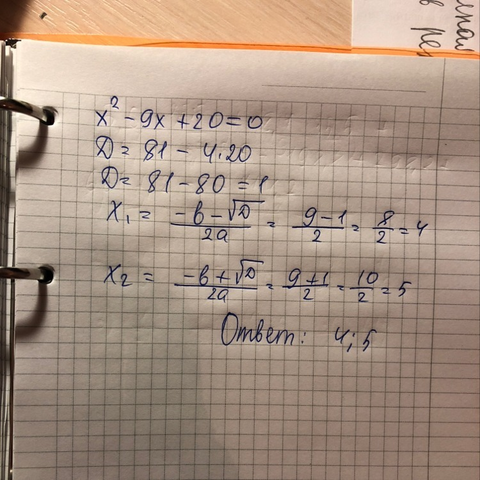 лпал
в рез
x² - 9x + 20 = 0
D = 81 - 4·20
D = 81 - 80 = 1
x₁ = (-b - √D)/2a = (9 - 1)/2 = 8/2 = 4
x₂ = (-b + √D)/2a = (9 + 1)/2 = 10/2 = 5
Ответ: 4; 5